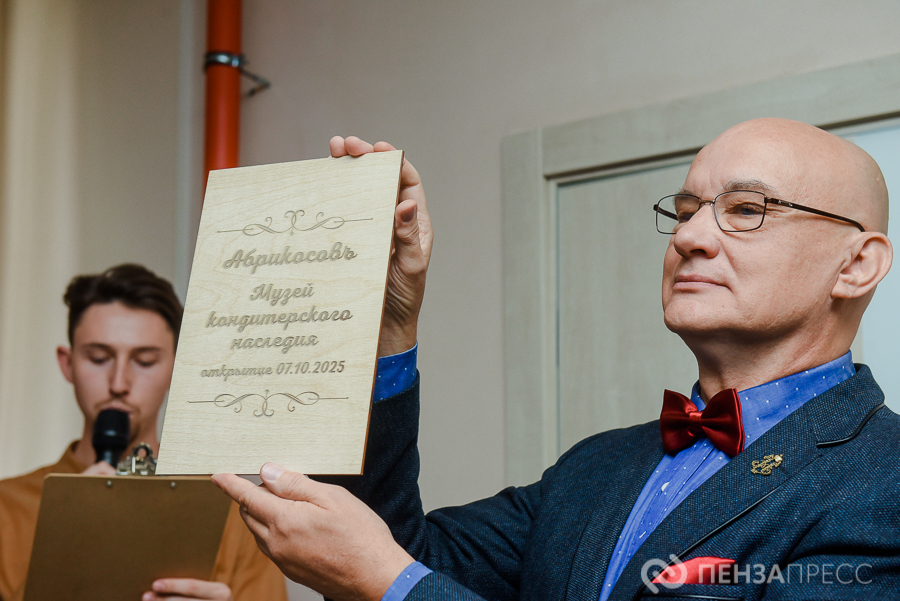 Абрикосовъ
Музей
кондитерского
наследия
открытие 07.10.2025
ПЕНЗАПРЕСС